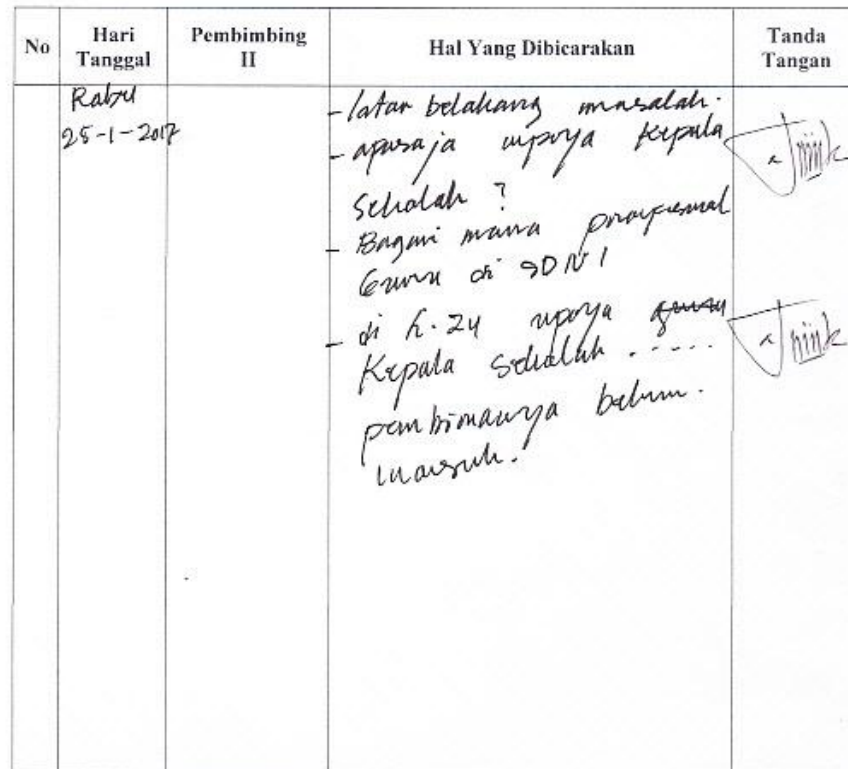 No
Hari
Tanggal
Pembimbing
II
Hal Yang Dibicarakan
Tanda
Tangan
Rabu
25-1-2017
- latar belakang masalah.
- apasaja upaya Kepala
Sekolah ?
- Bagaimana
Guru di SDN 1
- di h. 24 upaya guru
Kepala Sekolah .....
pembinaanya belum.
masuk.